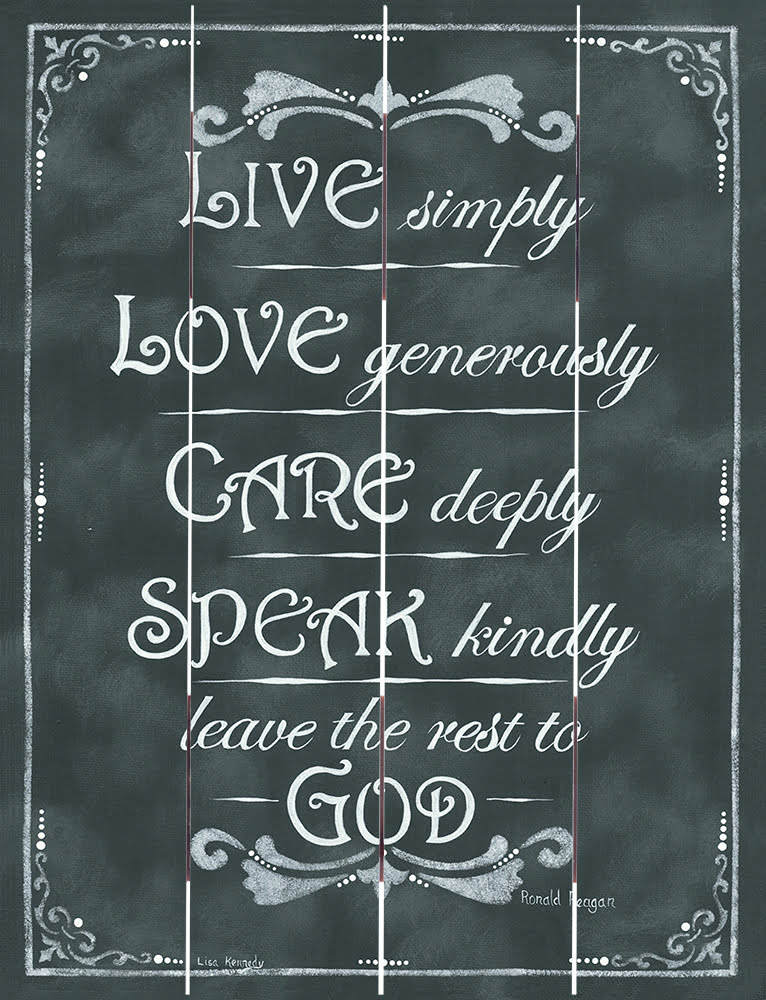 LIVE simply
LOVE generously
CARE deeply
SPEAK kindly
leave the rest to
GOD
Ronald Reagan
Lisa Kennedy